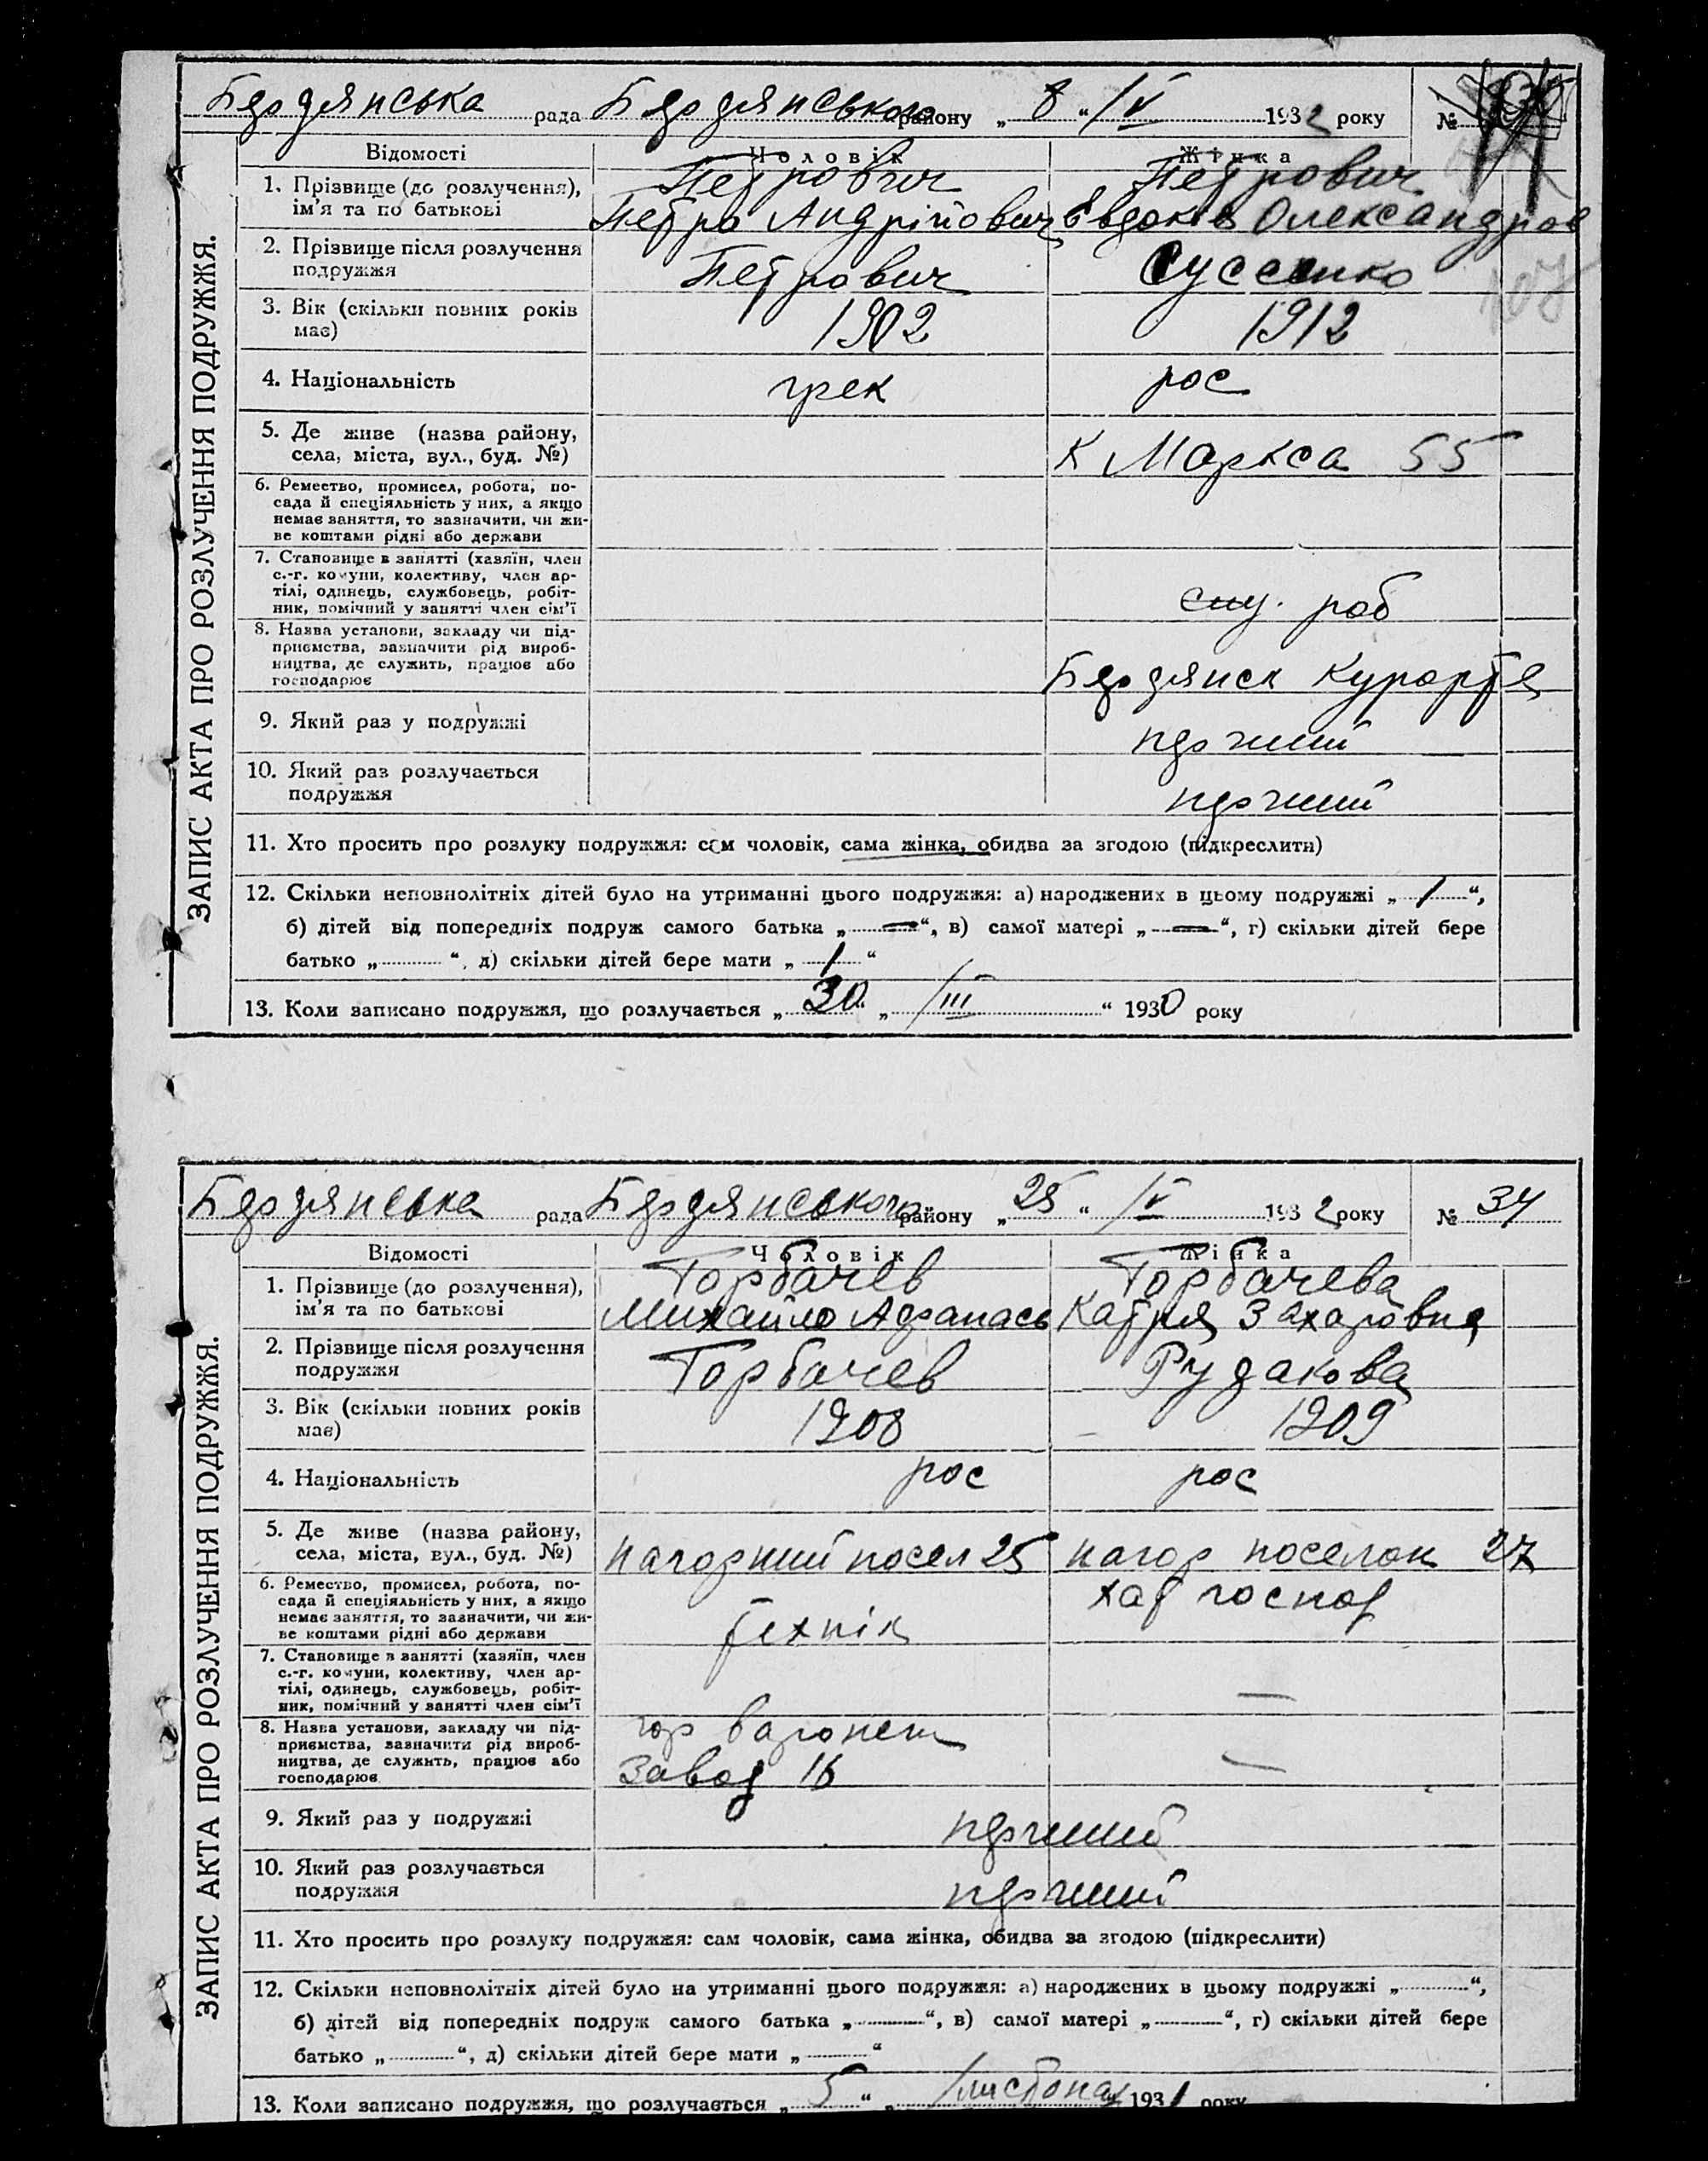 ЗАПИС АКТА ПРО РОЗЛУЧЕННЯ ПОДРУЖЖЯ.
Бердянська рада Бердянського району „8“ IV 1932 року №
Відомості Чоловік Жінка
1. Прізвище (до розлучення), Петрович Петрович
ім'я та по батькові Петро Андрійович Евдокія Олександров
2. Прізвище після розлучення
подружжя Петрович Суссенко
3. Вік (скільки повних років
має) 1902 1912
4. Національність грек рос
5. Де живе (назва району,
села, міста, вул., буд. №) К Маркса 55
6. Ремество, промисел, робота, по-
сада й спеціяльність у них, а якщо
немає заняття, то зазначити, чи жи-
ве коштами рідні або держави
7. Становище в занятті (хазяїн, член
с.-г. комуни, колективу, член ар-
тілі, одинець, службовець, робіт-
ник, помічний у занятті член сім'ї роб
8. Назва установи, закладу чи під-
приємства, зазначити рід вироб-
ництва, де служить, працює або
господарює Бердянск Курорт
9. Який раз у подружжі перший
10. Який раз розлучається
подружжя перший
11. Хто просить про розлуку подружжя: сам чоловік, сама жінка, обидва за згодою (підкреслити)
12. Скільки неповнолітніх дітей було на утриманні цього подружжя: а) народжених в цьому подружжі „1“,
б) дітей від попередніх подруж самого батька „—“, в) самої матері „—“, г) скільки дітей бере
батько „ “, д) скільки дітей бере мати „1“
13. Коли записано подружжя, що розлучається „30“ „III“ 1930 року
ЗАПИС АКТА ПРО РОЗЛУЧЕННЯ ПОДРУЖЖЯ.
Бердянська рада Бердянського району „25“ IV 1932 року № 34
Відомості Чоловік Жінка
1. Прізвище (до розлучення), Горбачев Горбачева
ім'я та по батькові Михайло Афанась Катря Захаровна
2. Прізвище після розлучення
подружжя Горбачев Рудакова
3. Вік (скільки повних років
має) 1908 1909
4. Національність рос рос
5. Де живе (назва району,
села, міста, вул., буд. №) нагорний посел 25 нагор поселок 27
6. Ремество, промисел, робота, по-
сада й спеціяльність у них, а якщо
немає заняття, то зазначити, чи жи-
ве коштами рідні або держави технік хат господ
7. Становище в занятті (хазяїн, член
с.-г. комуни, колективу, член ар-
тілі, одинець, службовець, робіт-
ник, помічний у занятті член сім'ї —
8. Назва установи, закладу чи під-
приємства, зазначити рід вироб-
ництва, де служить, працює або
господарює гор
завод 16 —
9. Який раз у подружжі перший
10. Який раз розлучається
подружжя перший
11. Хто просить про розлуку подружжя: сам чоловік, сама жінка, обидва за згодою (підкреслити)
12. Скільки неповнолітніх дітей було на утриманні цього подружжя: а) народжених в цьому подружжі „ “,
б) дітей від попередніх подруж самого батька „ “, в) самої матері „ “, г) скільки дітей бере
батько „ “, д) скільки дітей бере мати „ “
13. Коли записано подружжя, що розлучається „5“ „листопад 1931 року